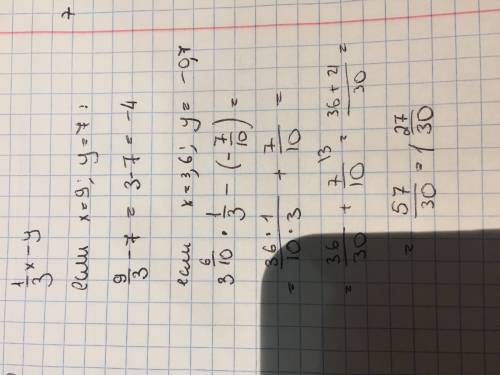 7
1/3 x - y
если x=9; y=7:
9/3 - 7 = 3-7 = -4
если x=3,6; y= -0,7
3 6/10 · 1/3 - (- 7/10) =
= 36·1/10·3 + 7/10 =
= 36/30 + 7/10 |3 = 36+21/30 =
= 57/30 = 1 27/30